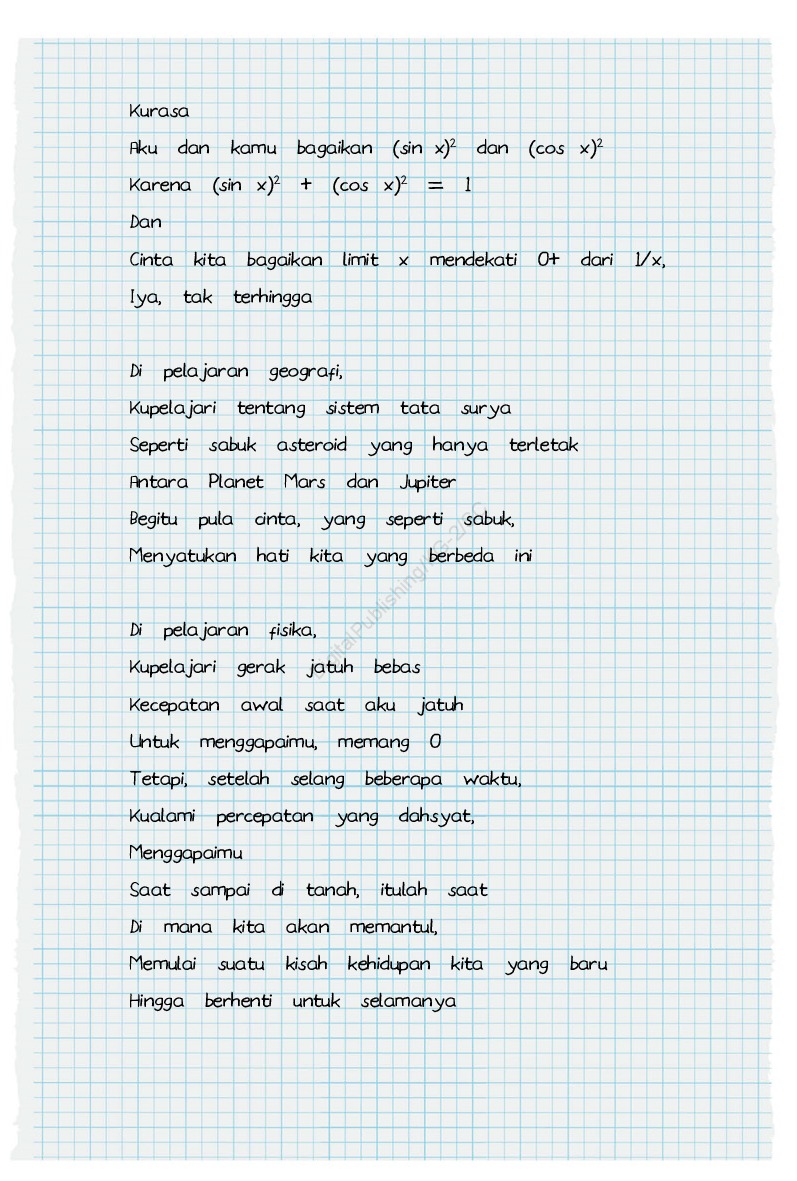 Kurasa
Aku dan kamu bagaikan (sin x)² dan (cos x)²
Karena (sin x)² + (cos x)² = 1
Dan
Cinta kita bagaikan limit x mendekati 0+ dari 1/x,
Iya, tak terhingga
Di pelajaran geografi,
Kupelajari tentang sistem tata surya
Seperti sabuk asteroid yang hanya terletak
Antara Planet Mars dan Jupiter
Begitu pula cinta, yang seperti sabuk,
Menyatukan hati kita yang berbeda ini
Di pelajaran fisika,
Kupelajari gerak jatuh bebas
Kecepatan awal saat aku jatuh
Untuk menggapaimu, memang 0
Tetapi, setelah selang beberapa waktu,
Kualami percepatan yang dahsyat,
Menggapaimu
Saat sampai di tanah, itulah saat
Di mana kita akan memantul,
Memulai suatu kisah kehidupan kita yang baru
Hingga berhenti untuk selamanya